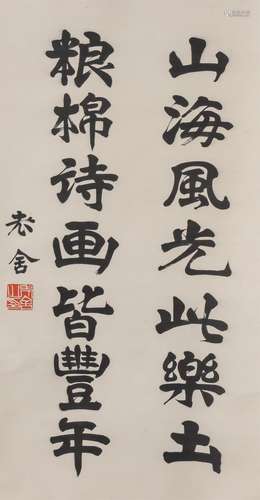 山海風光此樂土
粮棉诗画皆豐年
老舍